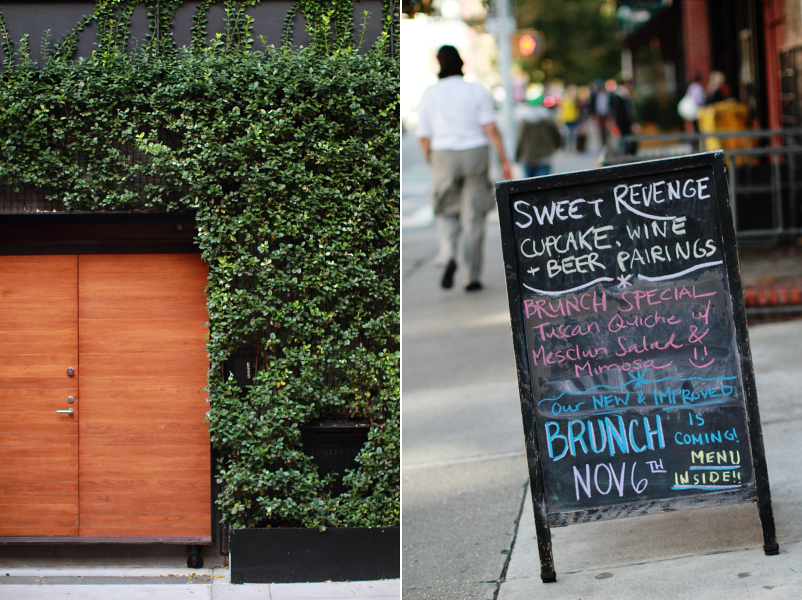 SWEET REVENGE
CUPCAKE, WINE
+ BEER PAIRINGS
BRUNCH SPECIAL
Tuscan Quiche w/
Mesclun Salad &
Mimosa
our NEW & IMPROVED
BRUNCH IS
COMING!
NOV 6TH MENU
INSIDE!!